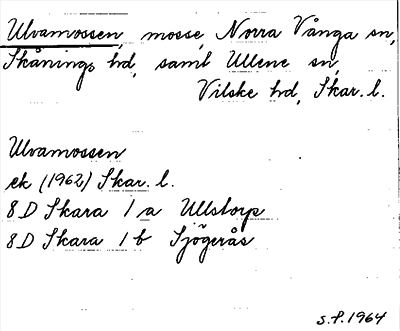 Ulvamossen, mosse, Norra Vånga sn,
Skånings hd, samt Ullene sn,
Vilske hd, Skar. l.
Ulvamossen
ek (1962) Skar. l.
8 D Skara 1 a Ullstorp
8 D Skara 1 b Sjögerås
S.F. 1964